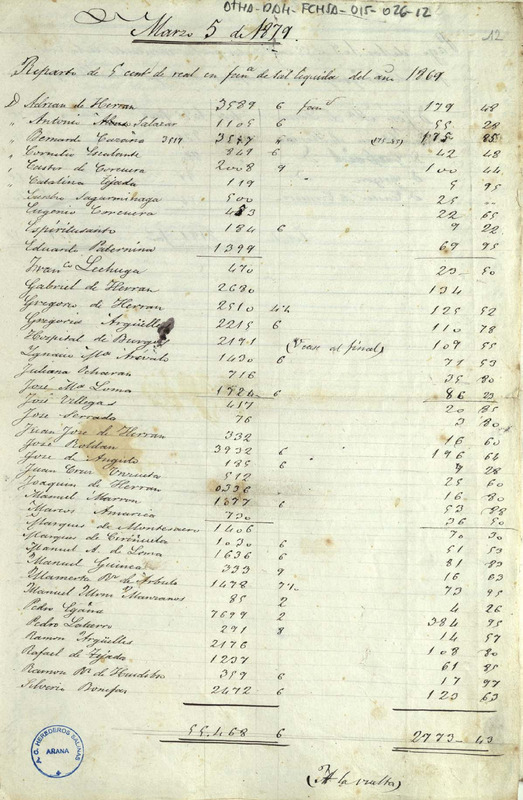 OTHA-DAH-FCHSA-015-026-12
12
Marzo 5 de 1879.
Reparto de 5 cent de real en fan.a de sal liquida del año 1869
D Adrian de Herran 3589 6 fan.s 179 48
" Antonio Salazar 1105 6 55 28
" Bernardo 3517 (175-85) 175 85
" Cornelio Escolante 849 6 42 48
" Castor de Corcuera 2008 9 100 44
" Catalina Tejada 119 5 95
Sagarminaga 500 25 "
Eugenio Corcuera 453 22 65
Espiritusanto 184 6 9 22
Eduardo Paternina 1399 69 95
Fran.co Lechuga 470 23 50
Gabriel de Herran 2680 134
Gregorio de Herran 2510 125 52
Gregorio Argüelles 2215 6 110 78
Hospital de Burgos 2191 (Vease al final) 109 55
Ygnacio M.a 1430 6 71 53
Juliana Ocharan 716 35 80
José M.a Loma 1724 6 86 23
José Villegas 417 20 85
Jose Serrada 76 3 80
Juan Jose de Herran 332 16 60
José Roldan 3932 6 196 64
Jose de Angulo 185 6 9 28
Juan Cruz 512 25 60
Joaquin de Herran 0336 16 80
Manuel Marron 1077 6 53 88
Marcos 730 36 50
Marques de Montesacro 1406 70 30
Marques de Ciriñuela 1030 6 51 53
Manuel A. de Loma 1636 6 81 83
Manuel Guinea 333 9 16 63
Mamerta R.z de 1478 73 95
Manuel Manzanos 85 2 4 26
Pedro Egaña 7699 2 384 95
Pedro 291 8 14 57
Ramon Argüelles 2176 108 80
Rafael de Tejada 1237 61 85
Ramon R.z de Huidobro 359 6 17 97
Silverio Bonifaz 2472 6 123 63
55.468 6 2773-43
(A la vuelta)
A.G. HEREDEROS SALINAS
AÑANA